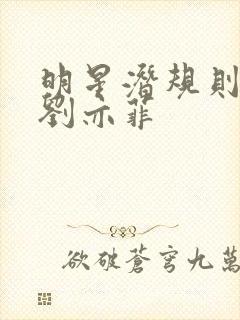 明星潛規則
劉亦菲
欲破蒼穹九萬